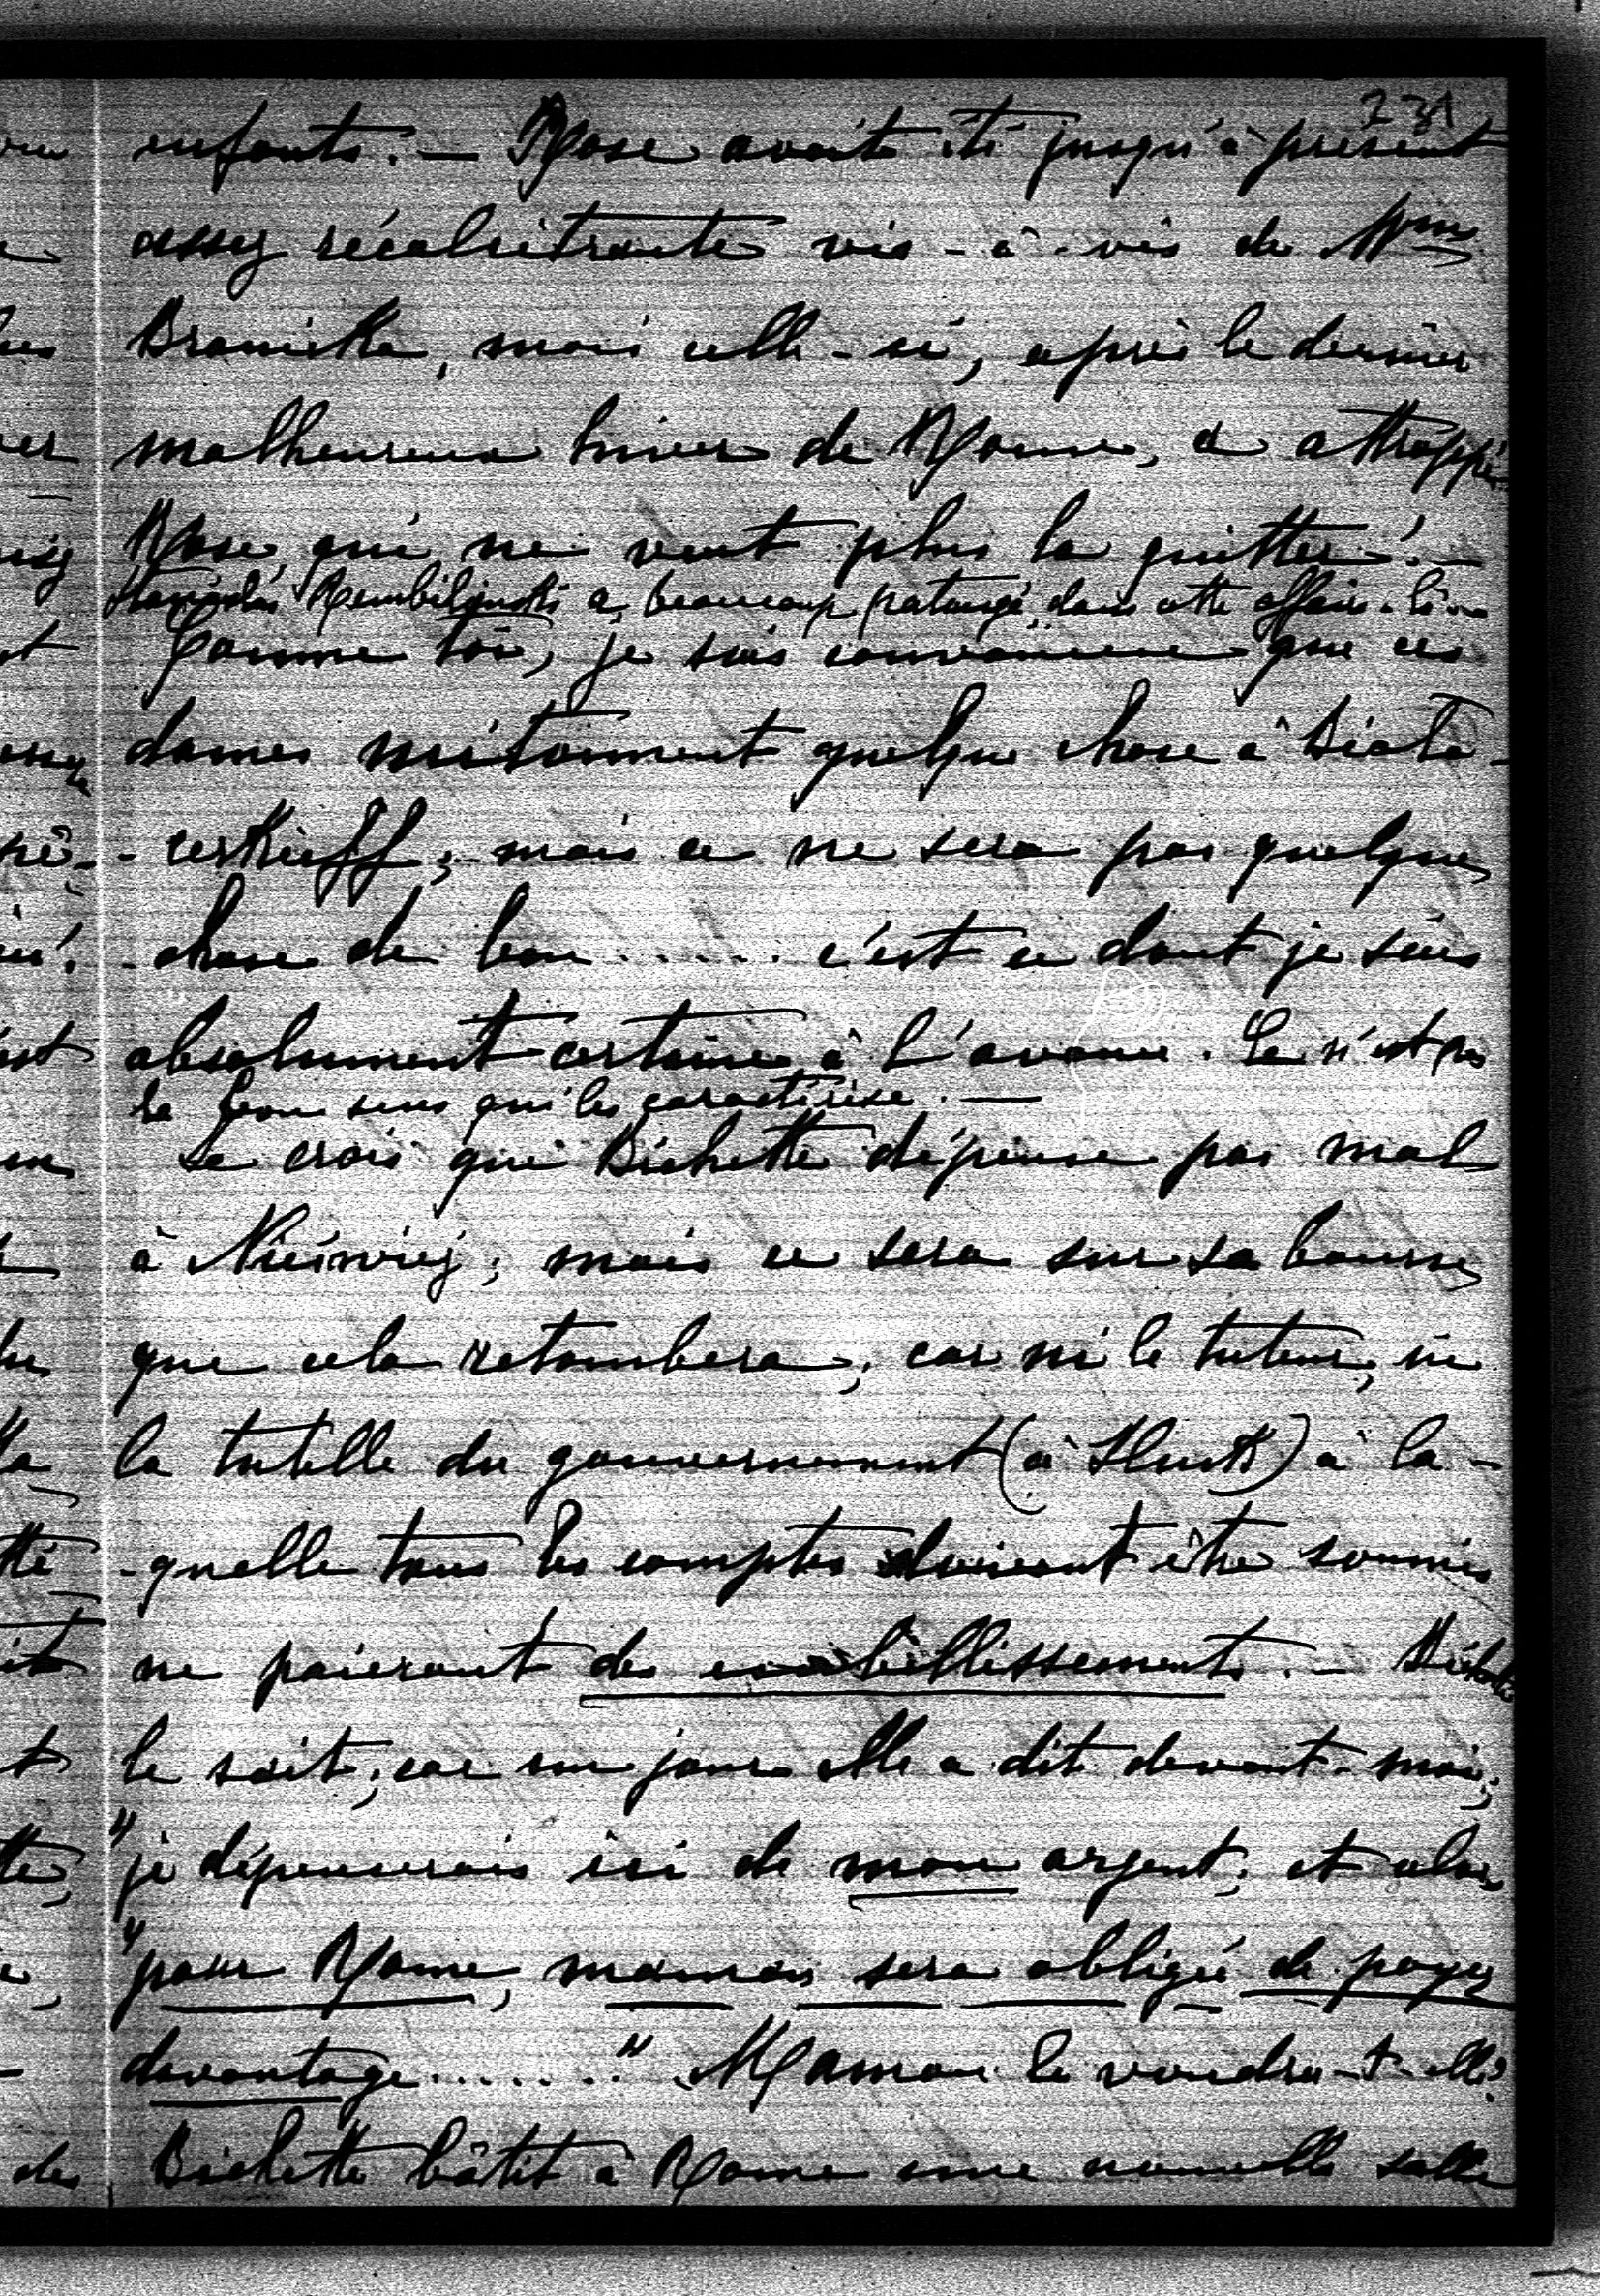 231
enfants. — Rose avait été jusqu'à présent
assez récalcitrante vis-à-vis de Mme
Branicka, mais celle-ci, après le dernier
malheureux hiver de Rome, a attrappé
Rose, qui ne veut plus la quitter. —
Stanislas Rembilinski a beaucoup pataugé dans cette affaire-là. —
Comme toi, je suis convaincue que ces
dames mitonnent quelque chose à Biała-
-cerkieff; mais ce ne sera pas quelque
-chose de bon ...... c'est ce dont je suis
absolument certaine à l'avance. Ce n'est pas
le bon sens qui les caractérise. —
Je crois que Bichette dépense pas mal
à Nieśwież; mais ce sera sur sa bourse
que cela retombera, car ni le tuteur, ni
la tutelle du gouvernement (à Słuck) à la-
-quelle tous les comptes doivent être soumis
ne paieront des embellissements. — Bichette
le sait, car un jour elle a dit devant moi;
"je dépenserais ici de mon argent; et alors
"pour Rome, maman sera obligée de payer
davantage ......" Maman le voudra-t-elle?
Bichette bâtit à Rome une nouvelle salle